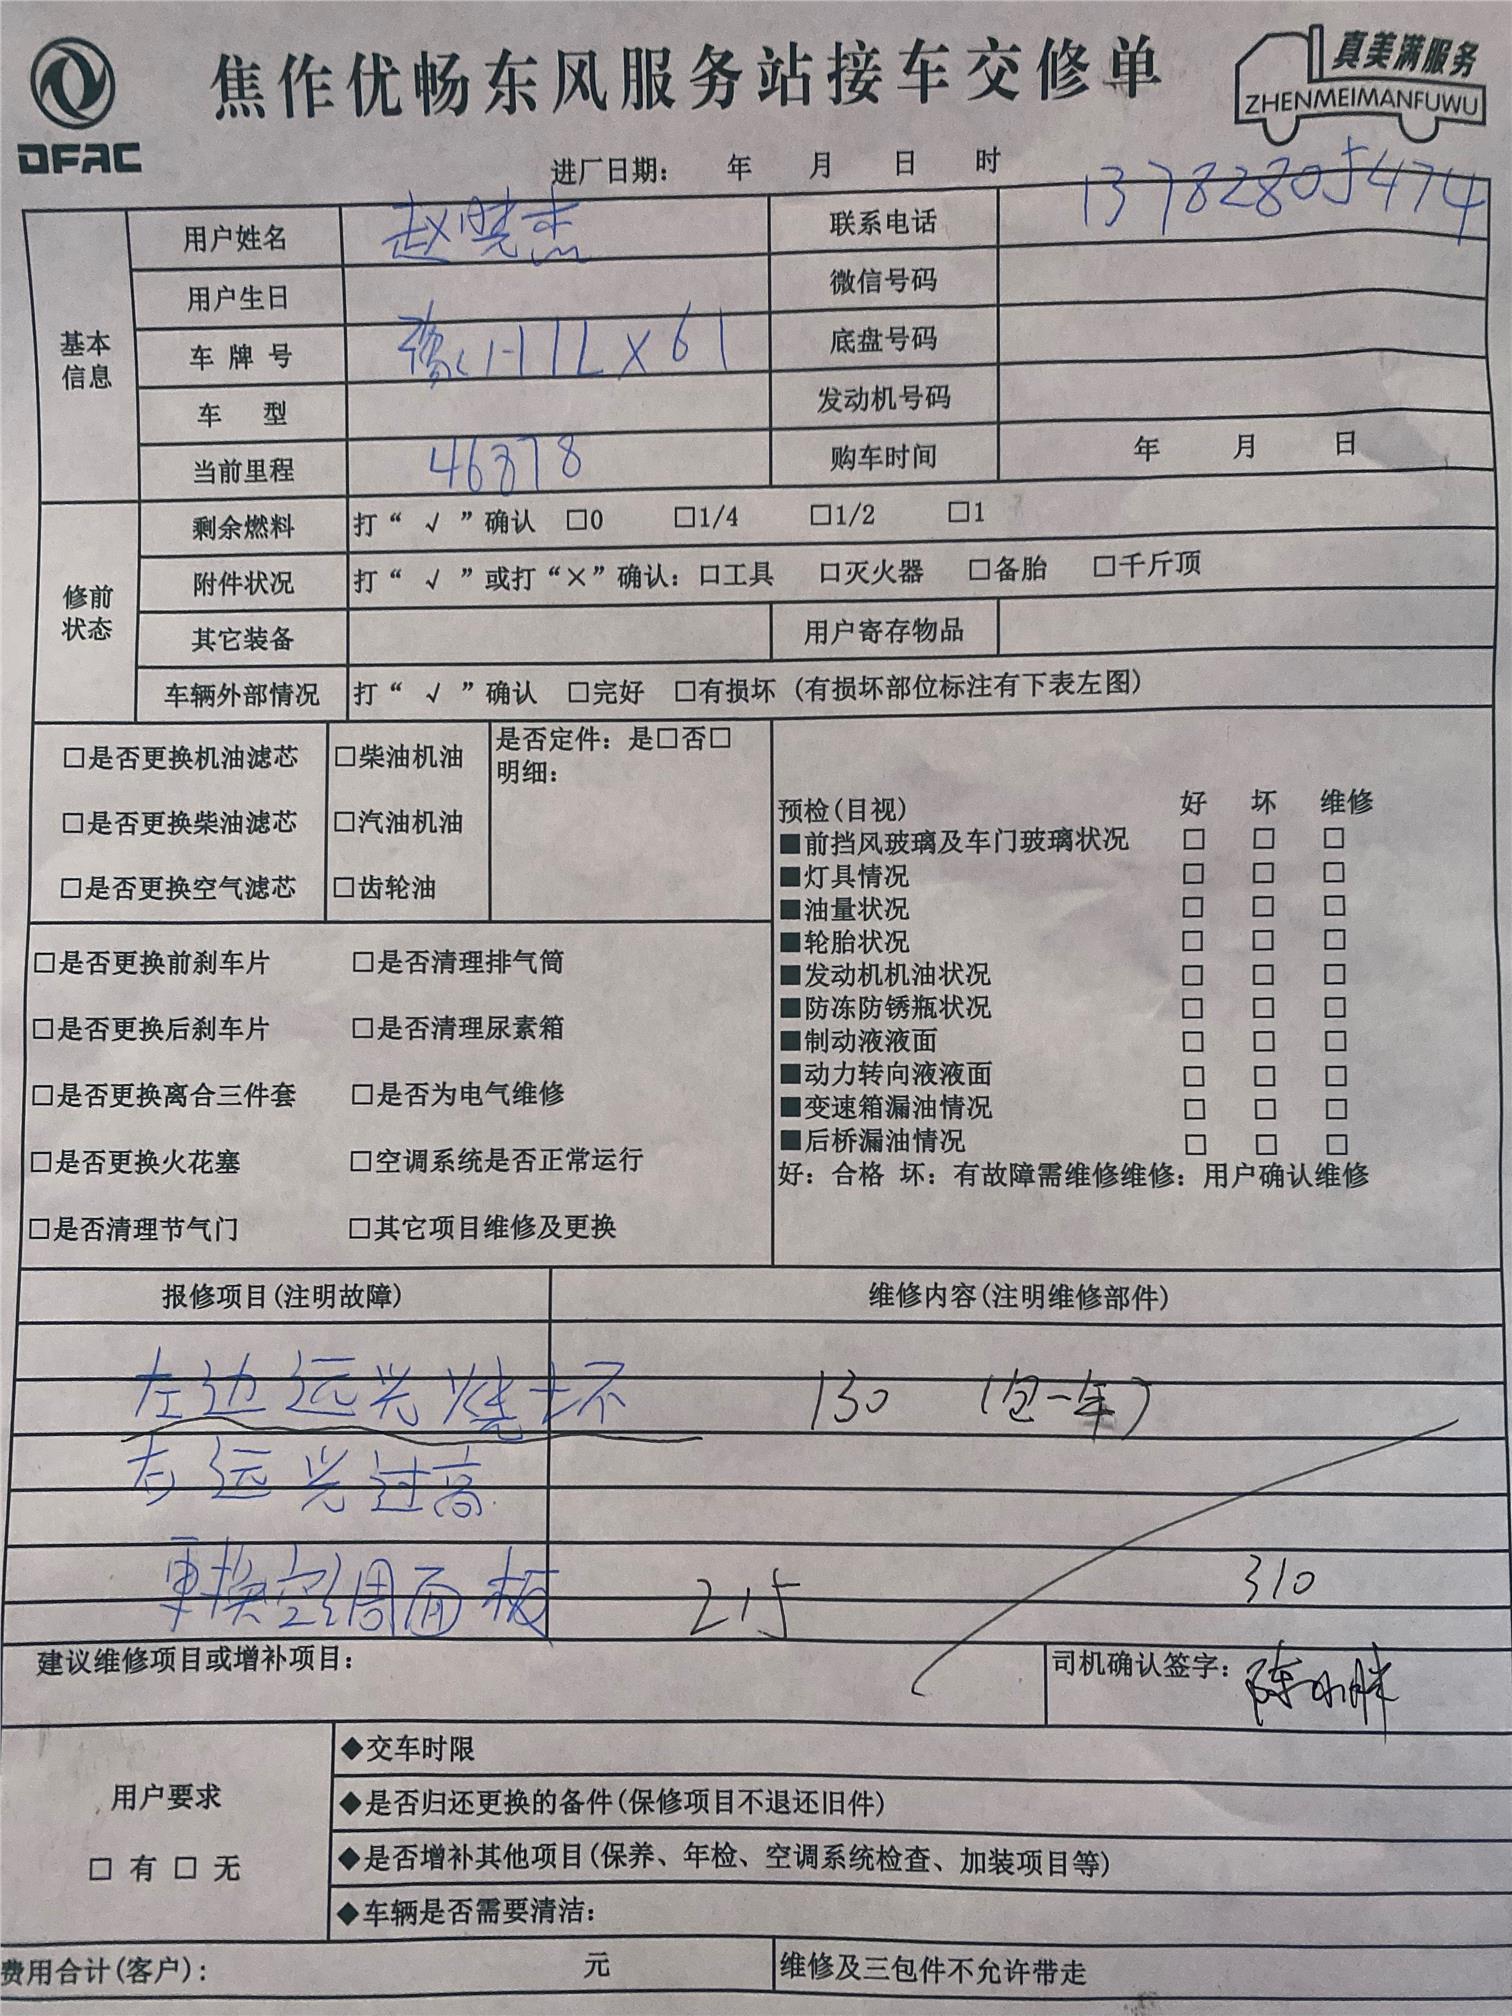 焦作优畅东风服务站接车交修单
DFAC
真美满服务
ZHENMEIMANFUWU
进厂日期: 年 月 日 时
基本信息
用户姓名 赵晓杰 联系电话 13782805474
用户生日 微信号码
车牌号 豫H1LX61 底盘号码
车 型 发动机号码
当前里程 46378 购车时间 年 月 日
修前状态
剩余燃料 打“√”确认 □0 □1/4 □1/2 □1
附件状况 打“√”或打“×”确认: □工具 □灭火器 □备胎 □千斤顶
其它装备 用户寄存物品
车辆外部情况 打“√”确认 □完好 □有损坏 (有损坏部位标注有下表左图)
□是否更换机油滤芯 □柴油机油 是否定件: 是□否□
明细:
□是否更换柴油滤芯 □汽油机油
□是否更换空气滤芯 □齿轮油
□是否更换前刹车片 □是否清理排气筒
□是否更换后刹车片 □是否清理尿素箱
□是否更换离合三件套 □是否为电气维修
□是否更换火花塞 □空调系统是否正常运行
□是否清理节气门 □其它项目维修及更换
预检(目视) 好 坏 维修
■前挡风玻璃及车门玻璃状况 □ □ □
■灯具情况 □ □ □
■油量状况 □ □ □
■轮胎状况 □ □ □
■发动机机油状况 □ □ □
■防冻防锈瓶状况 □ □ □
■制动液液面 □ □ □
■动力转向液液面 □ □ □
■变速箱漏油情况 □ □ □
■后桥漏油情况 □ □ □
好: 合格 坏: 有故障需维修维修: 用户确认维修
报修项目(注明故障) 维修内容(注明维修部件)
左边远光烧坏 130 (包一年)
右远光过高
更换空调面板 215 310
建议维修项目或增补项目: 司机确认签字:
用户要求
□ 有 □ 无
◆交车时限
◆是否归还更换的备件(保修项目不退还旧件)
◆是否增补其他项目(保养、年检、空调系统检查、加装项目等)
◆车辆是否需要清洁:
费用合计(客户): 元 维修及三包件不允许带走